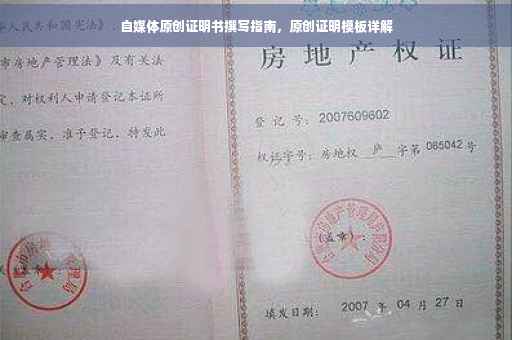 自媒体原创证明书撰写指南，原创证明模板详解
华人民共和国宪法》、
市房地产管理法》及有关法
定，对权利人申请登记本证所
审查属实，准予登记，特发此
房地产权证
登记号：2007609602
权证字号：房地权 庐 字第 085042 号
(盖章)：
填发日期：2007 年 04 月 27 日